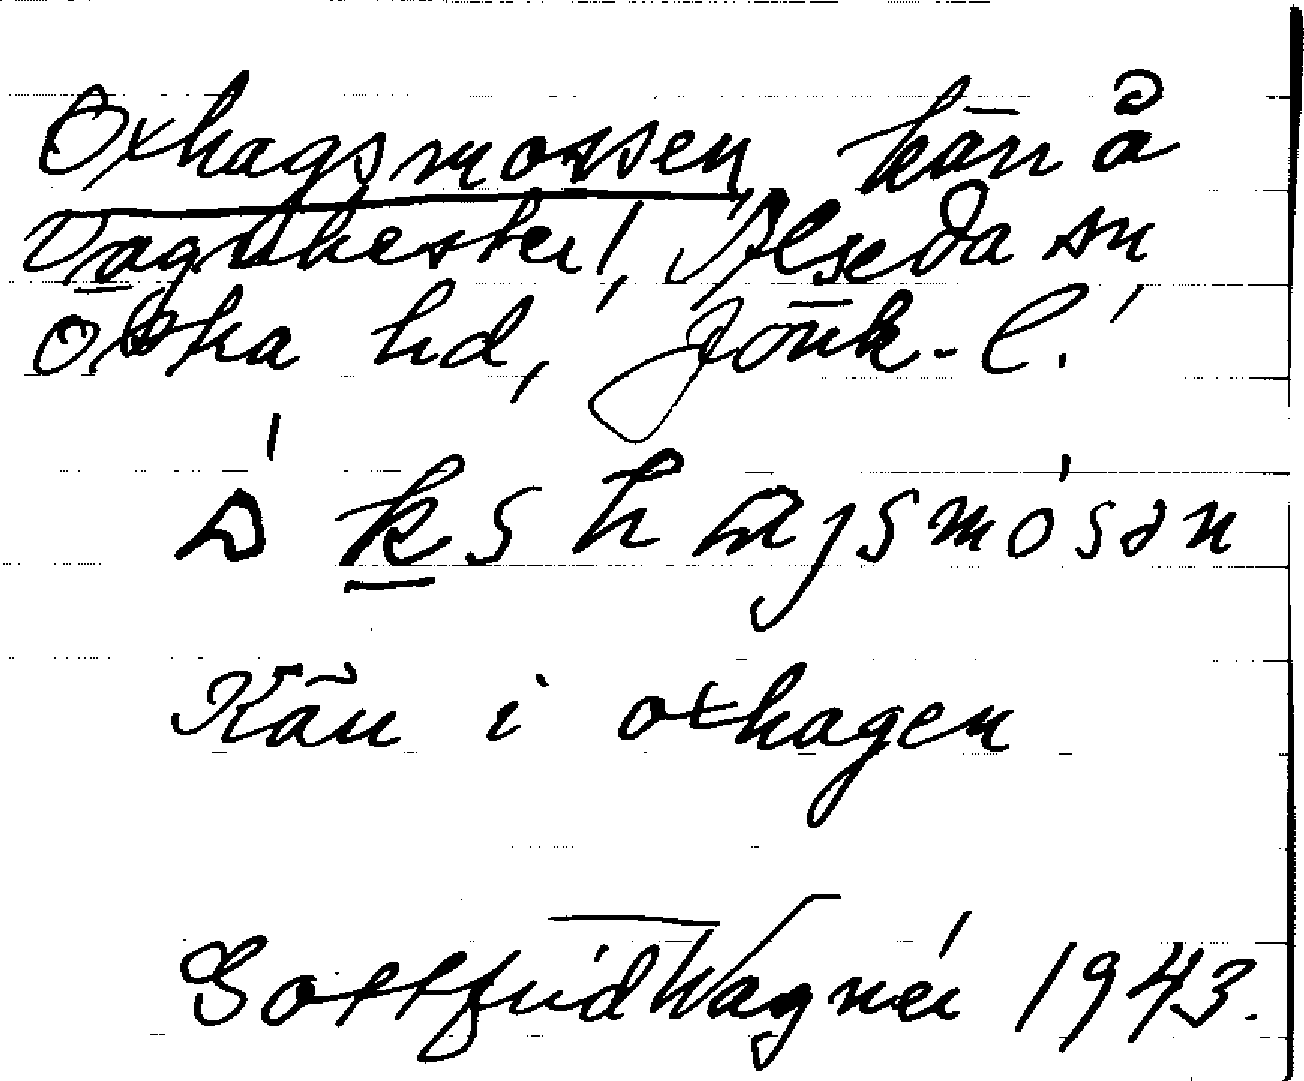 Oxhagsmossen, kärr å
Vagnhester, Alseda sn
Östra hd, Jönk. l.
kshagsmosən
Kärr i oxhagen
Gottfrid Wagnér 1943.